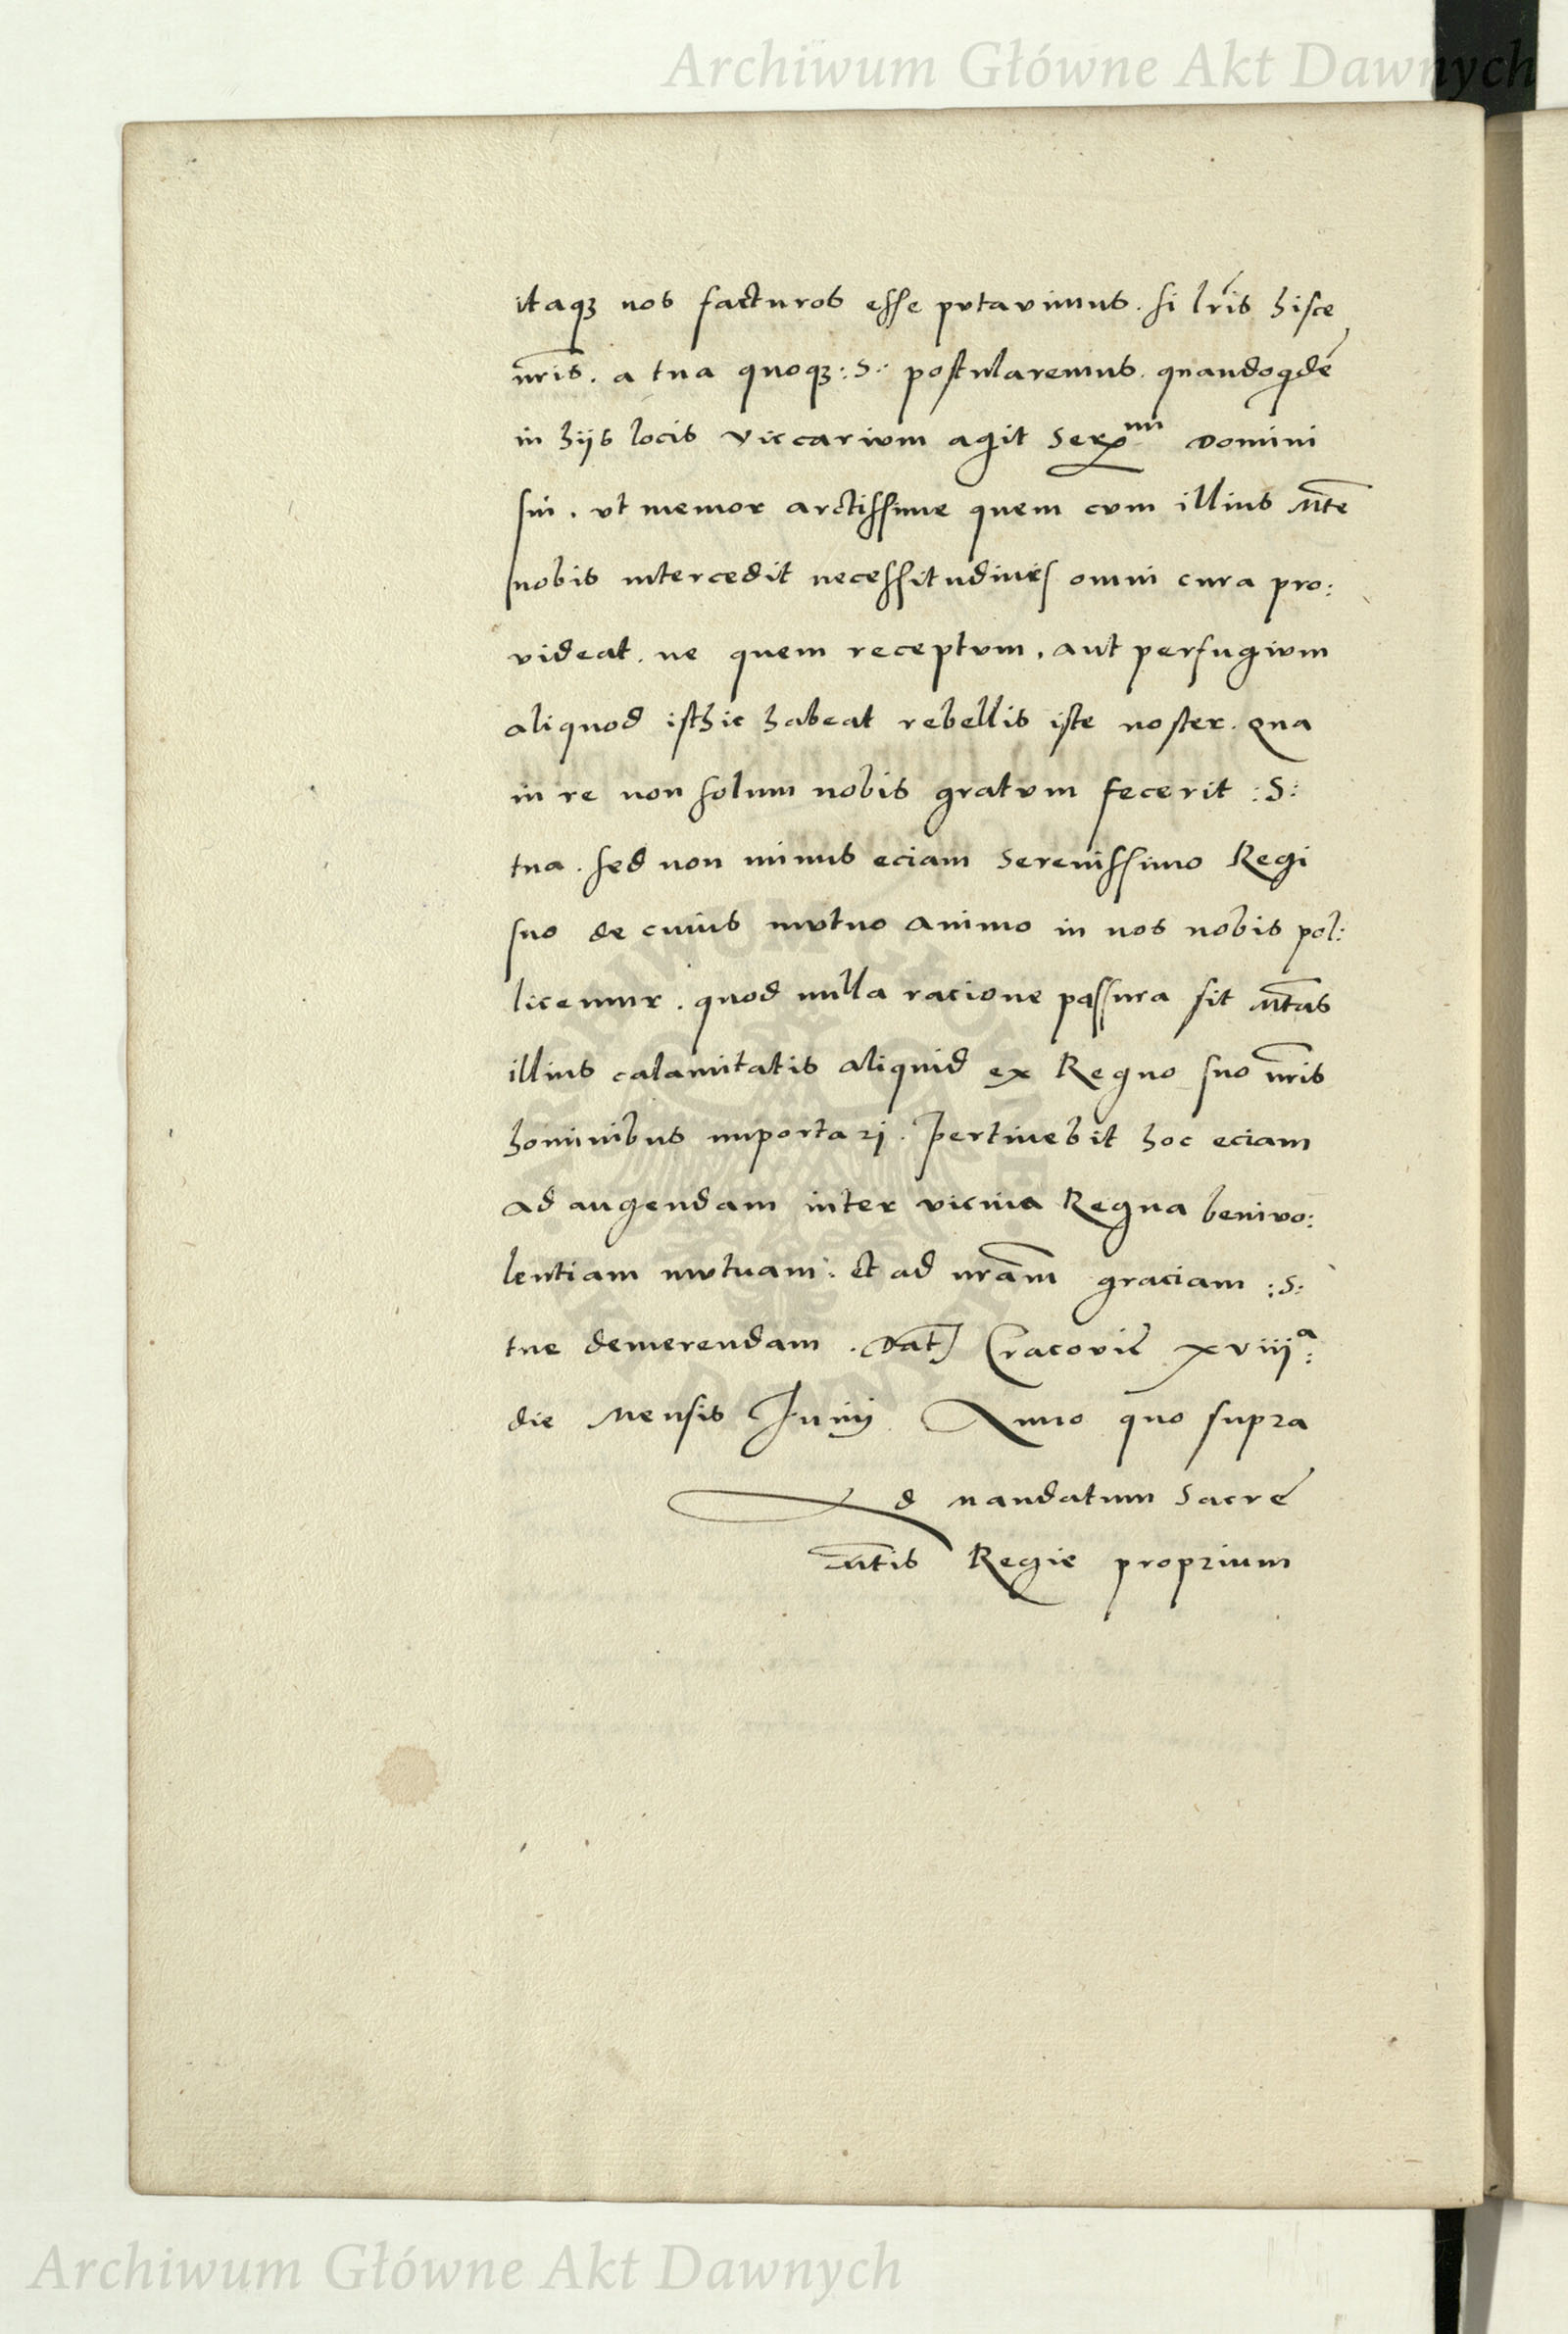 Archiwum Główne Akt Dawnych
itaqꝫ nos facturos esse putavimus. si lr̃is hisce
nr̃is. a tua quoqꝫ :S: postularemus. quandoqdẽ
in hijs locis viccarium agit Ser^mi Domini
sui. ut memor arctissime quem cum illius Mt̃e
nobis intercedit necessitudines omni cura pro:
videat. ne quem receptum, aut perfugium
aliquod isthic habeat rebellis iste noster. Qua
in re non solum nobis gratum fecerit :S:
tua. sed non minus eciam Serenissimo Regi
suo de cuius mutuo animo in nos nobis pol:
licemur. quod nulla racione passura sit Mt̃as
illius calamitatis aliquid ex Regno suo nr̃is
hominibus importari. Pertinebit hoc eciam
ad augendam inter vicina Regna benivo:
lentiam mutuam: et ad nr̃am graciam :S:
tue demerendam. Dat̃ Cracovie xviii^a:
die Mensis Junij Anno quo supra
Ad mandatum Sacre
Mt̃is Regie proprium
ARCHIWUM GŁÓWNE AKT DAWNYCH
Archiwum Główne Akt Dawnych